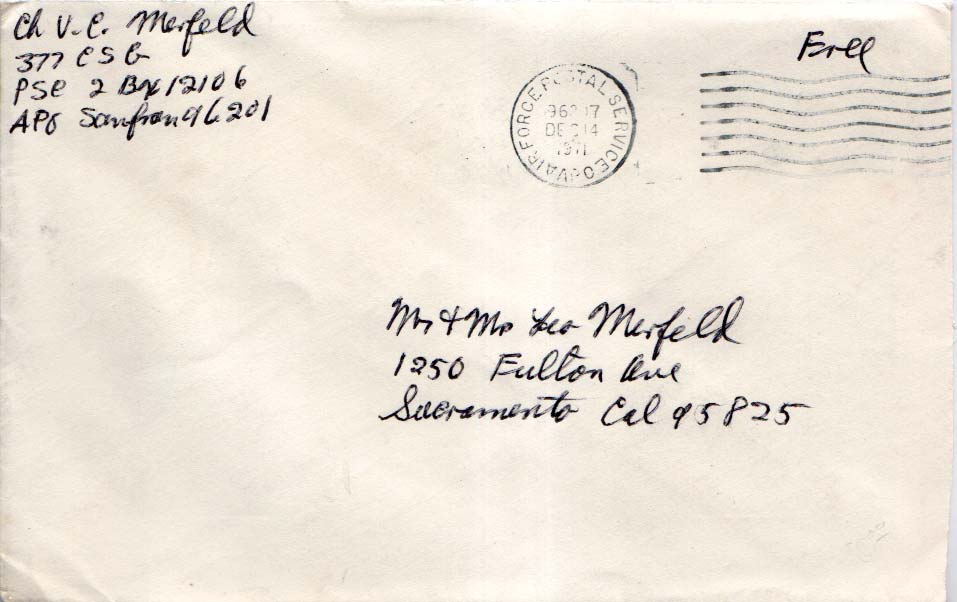 Ch V. C. Merfeld
377 C S G
PSC 2 Box 12106
APO Sanfran 96201
Free
AIR FORCE POSTAL SERVICE
DEC 14
1971
Mr & Mrs Leo Merfeld
1250 Fulton Ave
Sacramento Cal 95825